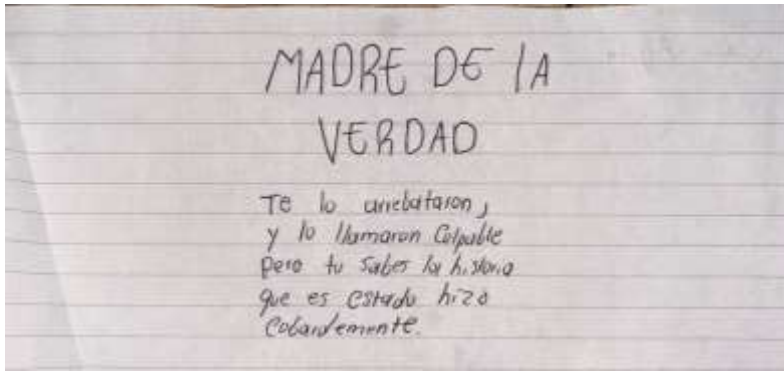 MADRE DE LA
VERDAD
Te lo arrebataron,
y lo llamaron Culpable
pero tu sabes la historia
que es estado hizo
Cobardemente.